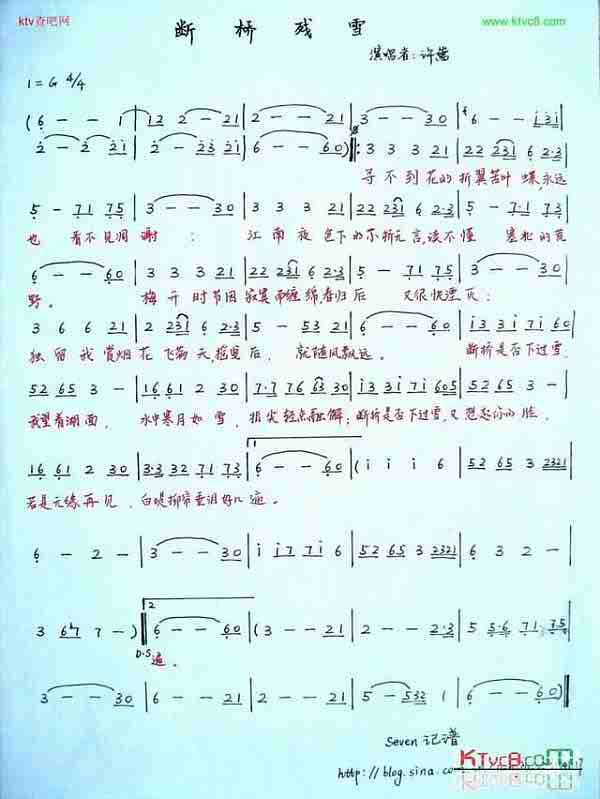 ktv查吧网
www.ktvc8.com
断桥残雪
演唱者:许嵩
1=G 4/4
(6 - - 1 | 12 2 - 21 | 2 - - 21 | 3 - - 30 | 6 - - i3i |
2 - 2 2i | 2 - 23 2i | 6 - - 60) ‖: 3 3 3 21 | 22 231 6 2·3 |
寻不到花的折翼枯叶蝶,永远
5 - 71 75 | 3 - - 30 | 3 3 3 21 | 22 231 6 2·3 | 5 - 7·1 75 |
也 看不见凋谢: 江南夜色下的小桥 言,读不懂 塞北的荒
6 - - 60 | 3 3 3 21 | 22 231 6 2·3 | 5 - 71 75 | 3 - - 30 |
野。 梅开时节因寂寞而缠绵,春归后 又很快湮灭:
3 6 6 21 | 2 231 6 2·3 | 5 - - 53 | 6 - - 60 | i3 3i 7i 57 |
独留我赏烟花飞满天,摇曳后, 就随风飘远。 断桥是否下过雪,
52 65 3 - | 16 61 2 30 | 7·7 76 63 30 | i3 3i 7i 605 | 52 65 3 - |
我望着湖面, 水中寒月如雪, 指尖轻点融解; 断桥是否下过雪,又想起你的脸,
16 61 2 30 | 3·3 32 71 73 | 1 6 - - 60 | (i i i 6 | 52 65 3 2321 |
若是无缘再见, 白堤柳帘垂泪好几遍。
6 - 2 - | 3 - - 30 | i i7 7i 6 | 52 65 3 2321 | 6 3 2 - |
3 67 7 -) ‖ 2 6 - - 60 | (3 - - 21 | 2 - - 2·3 | 5 5·6 71 75 |
D·S 遍。
3 - - 30 | 6 - - 21 | 2 - - 21 | 5 - 532 1 | 6 - - 60) ‖
Seven 记谱
KTvc8.com
http://blog.sina.co